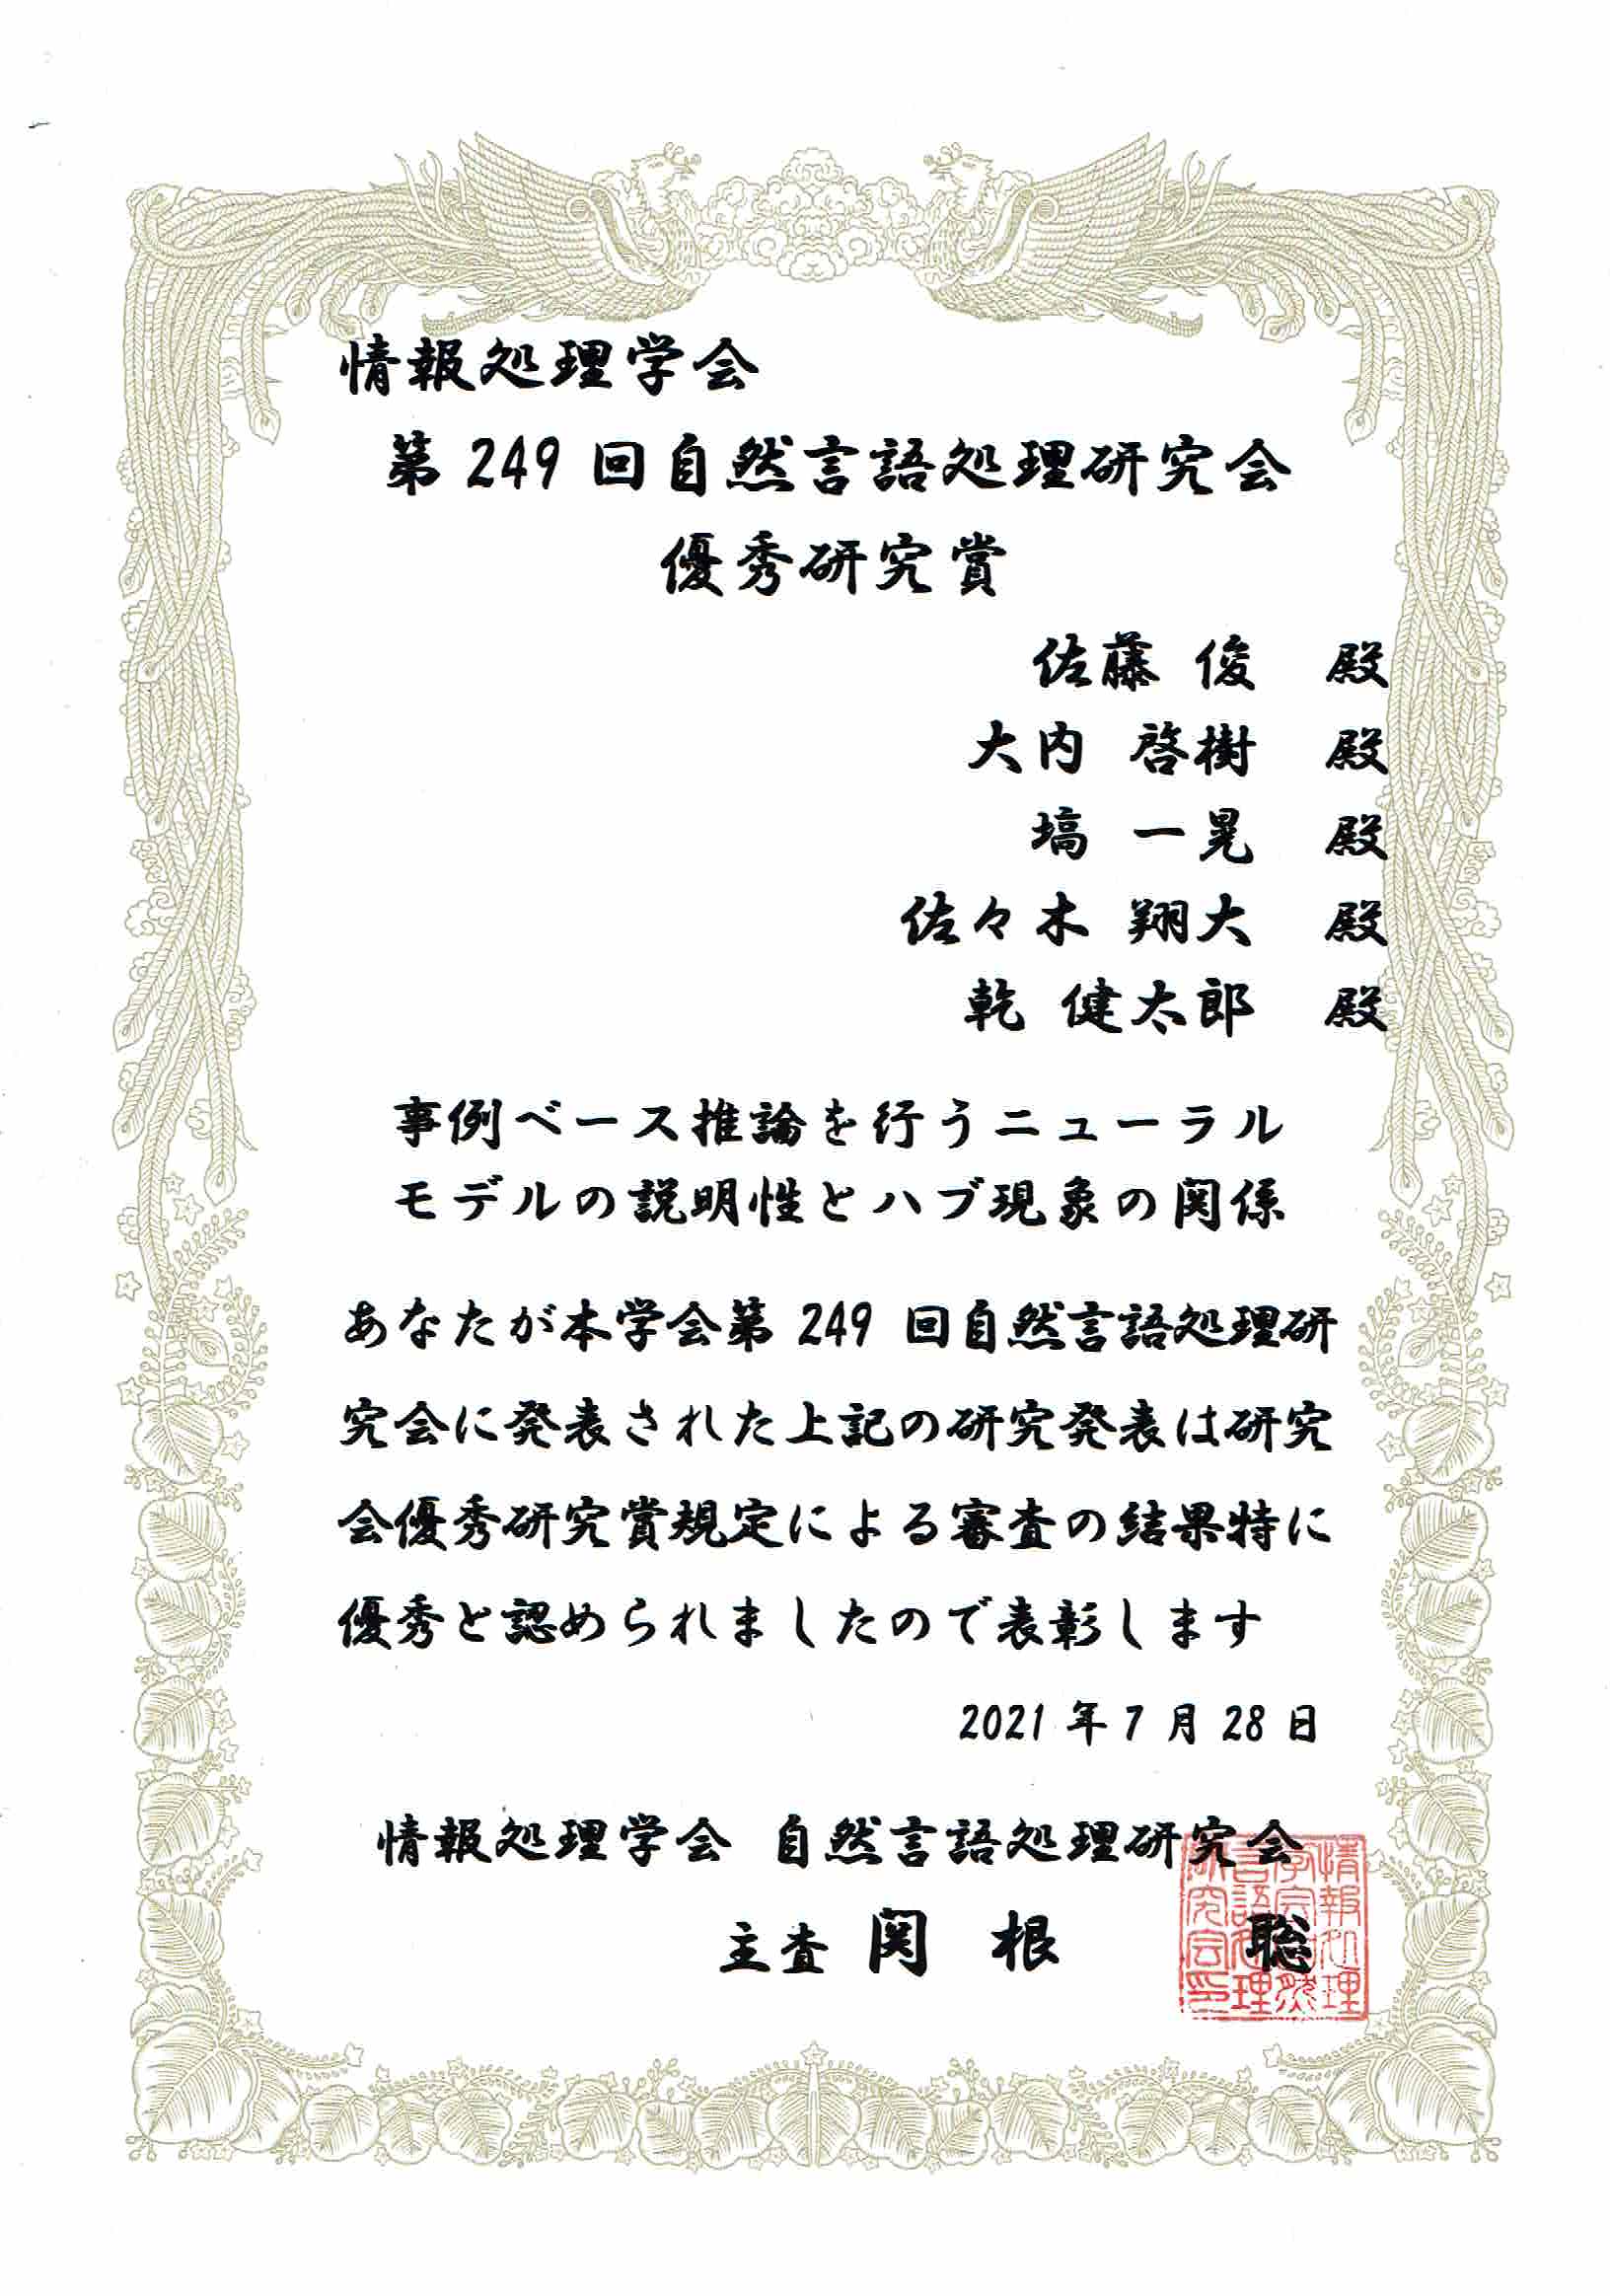 情報処理学会
第 249 回自然言語処理研究会
優秀研究賞
佐藤 俊 殿
大内 啓樹 殿
塙 一晃 殿
佐々木 翔大 殿
乾 健太郎 殿
事例ベース推論を行うニューラル
モデルの説明性とハブ現象の関係
あなたが本学会第 249 回自然言語処理研
究会に発表された上記の研究発表は研究
会優秀研究賞規定による審査の結果特に
優秀と認められましたので表彰します
2021 年 7 月 28 日
情報処理学会 自然言語処理研究会
主査 関 根 聡
情報処理
学会自然
言語処理
研究会印